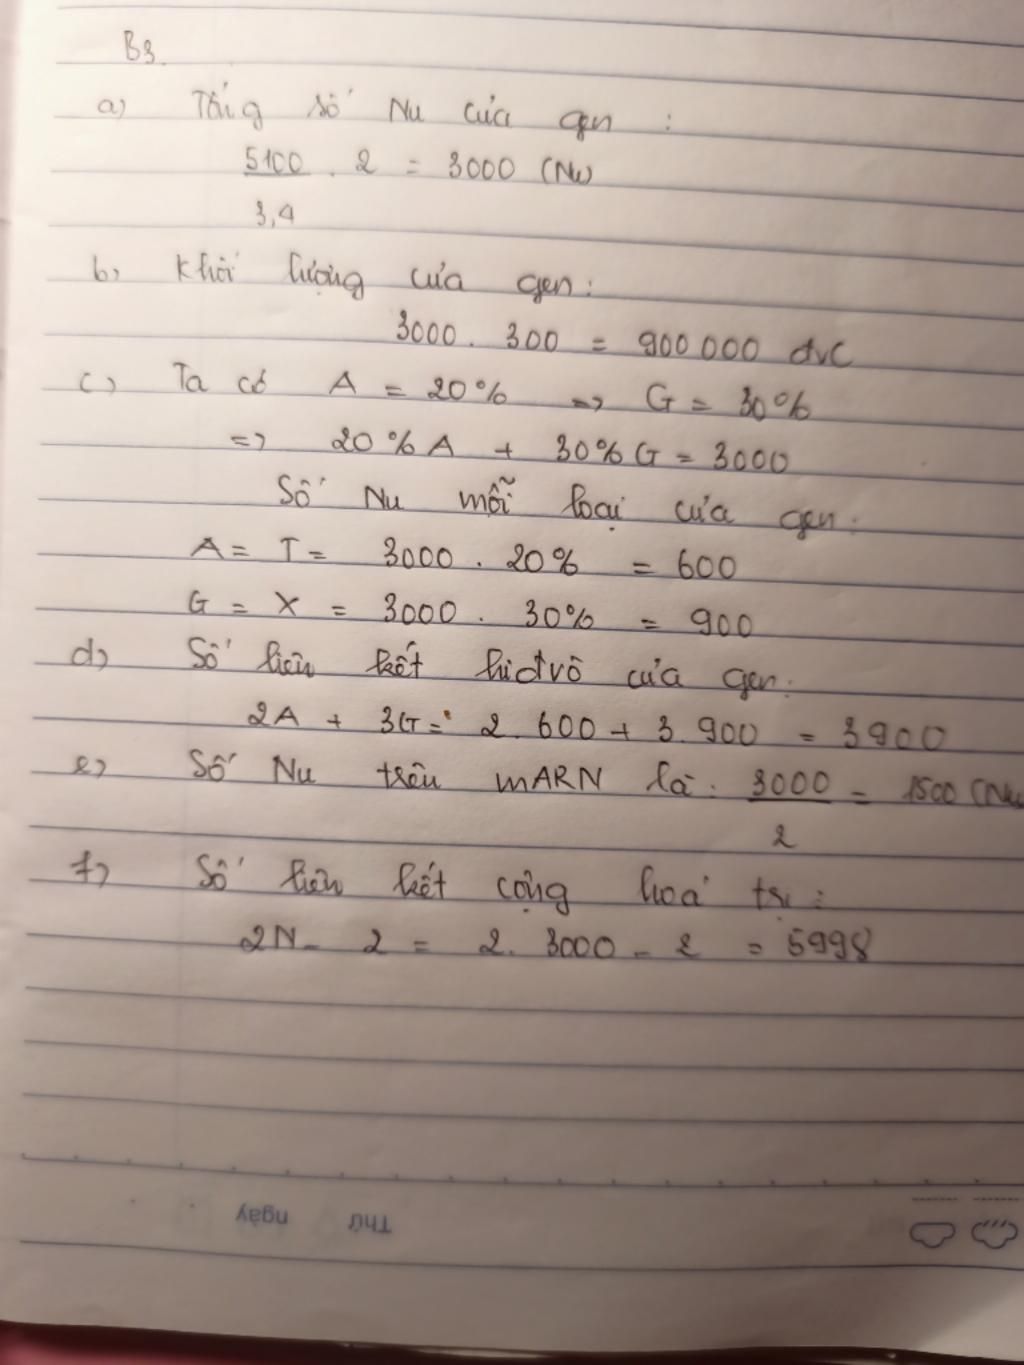 B3.
a) Tổng số Nu của gen :
5100 . 2 = 3000 (Nu)
3,4
b, Khối lượng của gen:
3000 . 300 = 900 000 đvC
c) Ta có A = 20% => G = 30%
=> 20% A + 30% G = 3000
Số Nu mỗi loại của gen:
A = T = 3000 . 20% = 600
G = X = 3000 . 30% = 900
d) Số liên kết hiđrô của gen:
2A + 3G = 2. 600 + 3. 900 = 3900
e) Số Nu trên mARN là : 3000 = 1500 (Nu
2
f) Số liên kết cộng hoá trị :
2N - 2 = 2. 3000 - 2 = 5998
Thứ ngày